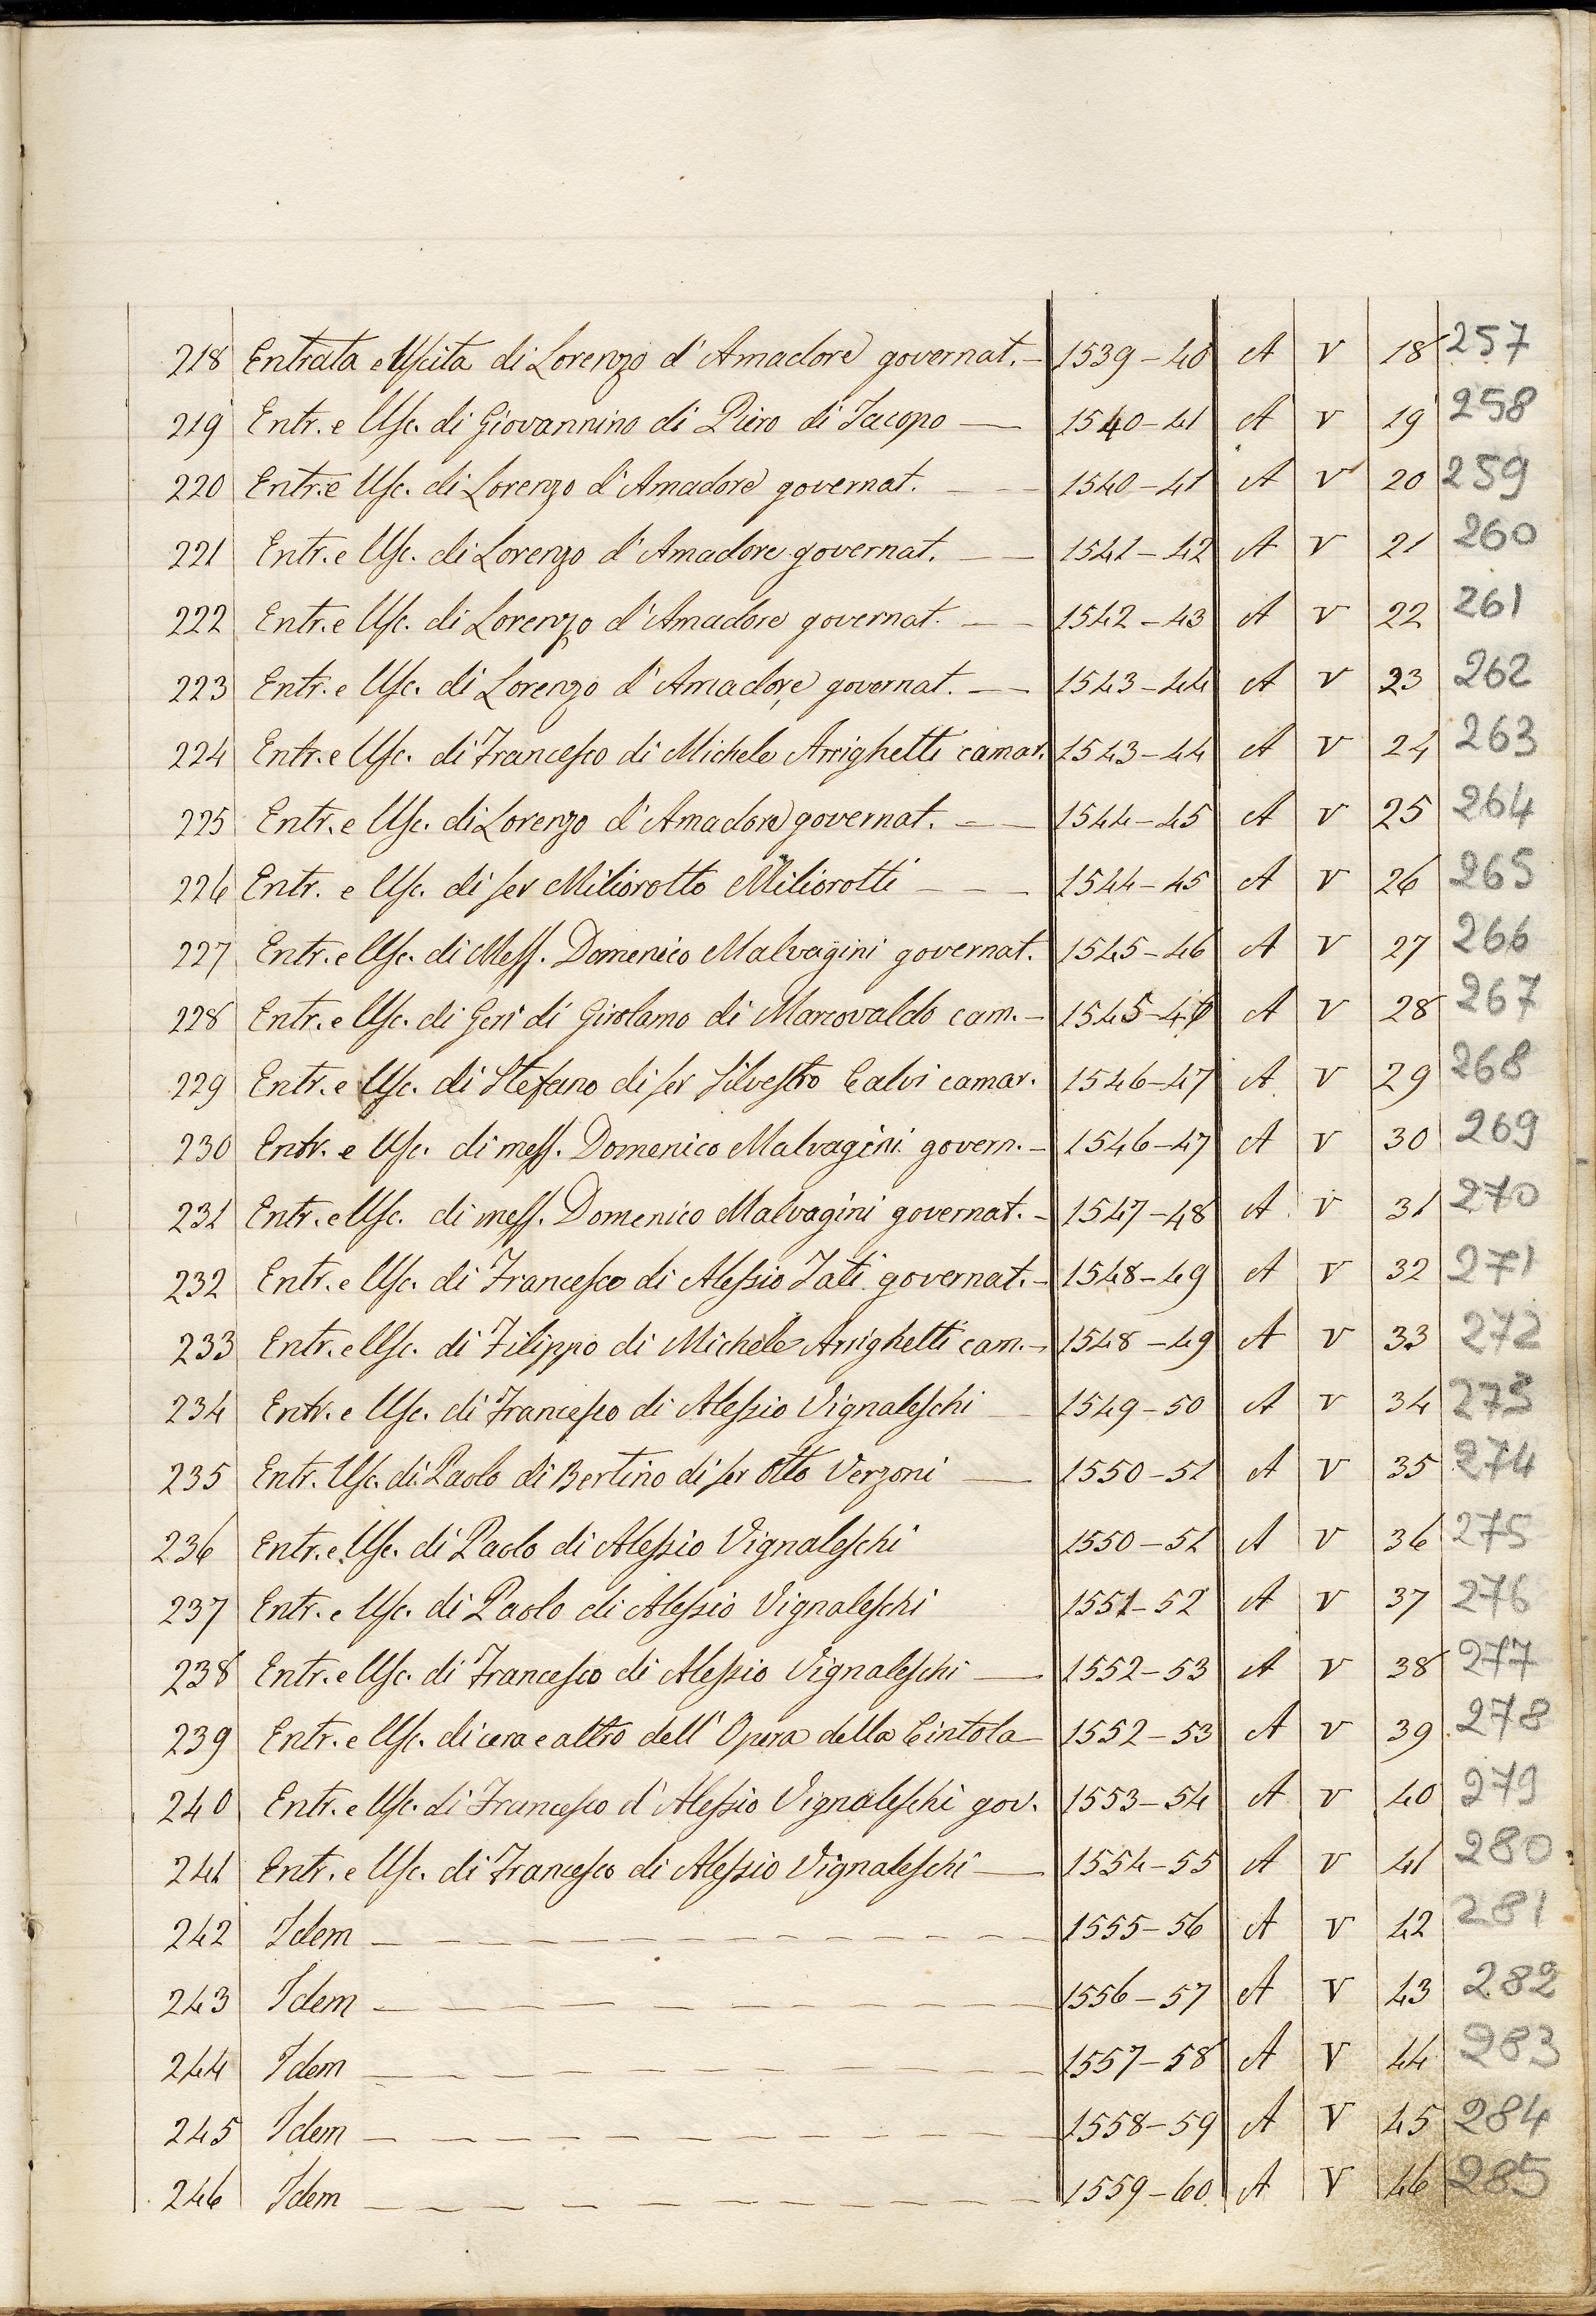 218 Entrata e Uscita di Lorenzo d'Amadore governat. 1539-40 A V 18 257
219 Entr. e Usc. di Giovannino di Piero di Jacopo 1540-41 A V 19 258
220 Entr. e Usc. di Lorenzo d'Amadore governat. 1540-41 A V 20 259
221 Entr. e Usc. di Lorenzo d'Amadore governat. 1541-42 A V 21 260
222 Entr. e Usc. di Lorenzo d'Amadore governat. 1542-43 A V 22 261
223 Entr. e Usc. di Lorenzo d'Amadore governat. 1543-44 A V 23 262
224 Entr. e Usc. di Francesco di Michele Arrighetti camar. 1543-44 A V 24 263
225 Entr. e Usc. di Lorenzo d'Amadore governat. 1544-45 A V 25 264
226 Entr. e Usc. di ser Miliorotto Miliorotti 1544-45 A V 26 265
227 Entr. e Usc. di Mess. Domenico Malvagini governat. 1545-46 A V 27 266
228 Entr. e Usc. di Geri di Girolamo di Marcovaldo cam. 1545-46 A V 28 267
229 Entr. e Usc. di Stefano di ser Silvestro Calvi camar. 1546-47 A V 29 268
230 Entr. e Usc. di mess. Domenico Malvagini govern. 1546-47 A V 30 269
231 Entr. e Usc. di mess. Domenico Malvagini governat. 1547-48 A V 31 270
232 Entr. e Usc. di Francesco di Alessio Tati governat. 1548-49 A V 32 271
233 Entr. e Usc. di Filippo di Michele Arrighetti cam. 1548-49 A V 33 272
234 Entr. e Usc. di Francesco di Alessio Vignaleschi 1549-50 A V 34 273
235 Entr. Usc. di Paolo di Bertino di ser Otto Verzoni 1550-51 A V 35 274
236 Entr. e Usc. di Paolo di Alessio Vignaleschi 1550-51 A V 36 275
237 Entr. e Usc. di Paolo di Alessio Vignaleschi 1551-52 A V 37 276
238 Entr. e Usc. di Francesco di Alessio Vignaleschi 1552-53 A V 38 277
239 Entr. e Usc. di cera e altro dell'Opera della Cintola 1552-53 A V 39 278
240 Entr. e Usc. di Francesco d'Alessio Vignaleschi gov. 1553-54 A V 40 279
241 Entr. e Usc. di Francesco di Alessio Vignaleschi 1554-55 A V 41 280
242 Idem 1555-56 A V 42 281
243 Idem 1556-57 A V 43 282
244 Idem 1557-58 A V 44 283
245 Idem 1558-59 A V 45 284
246 Idem 1559-60 A V 46 285